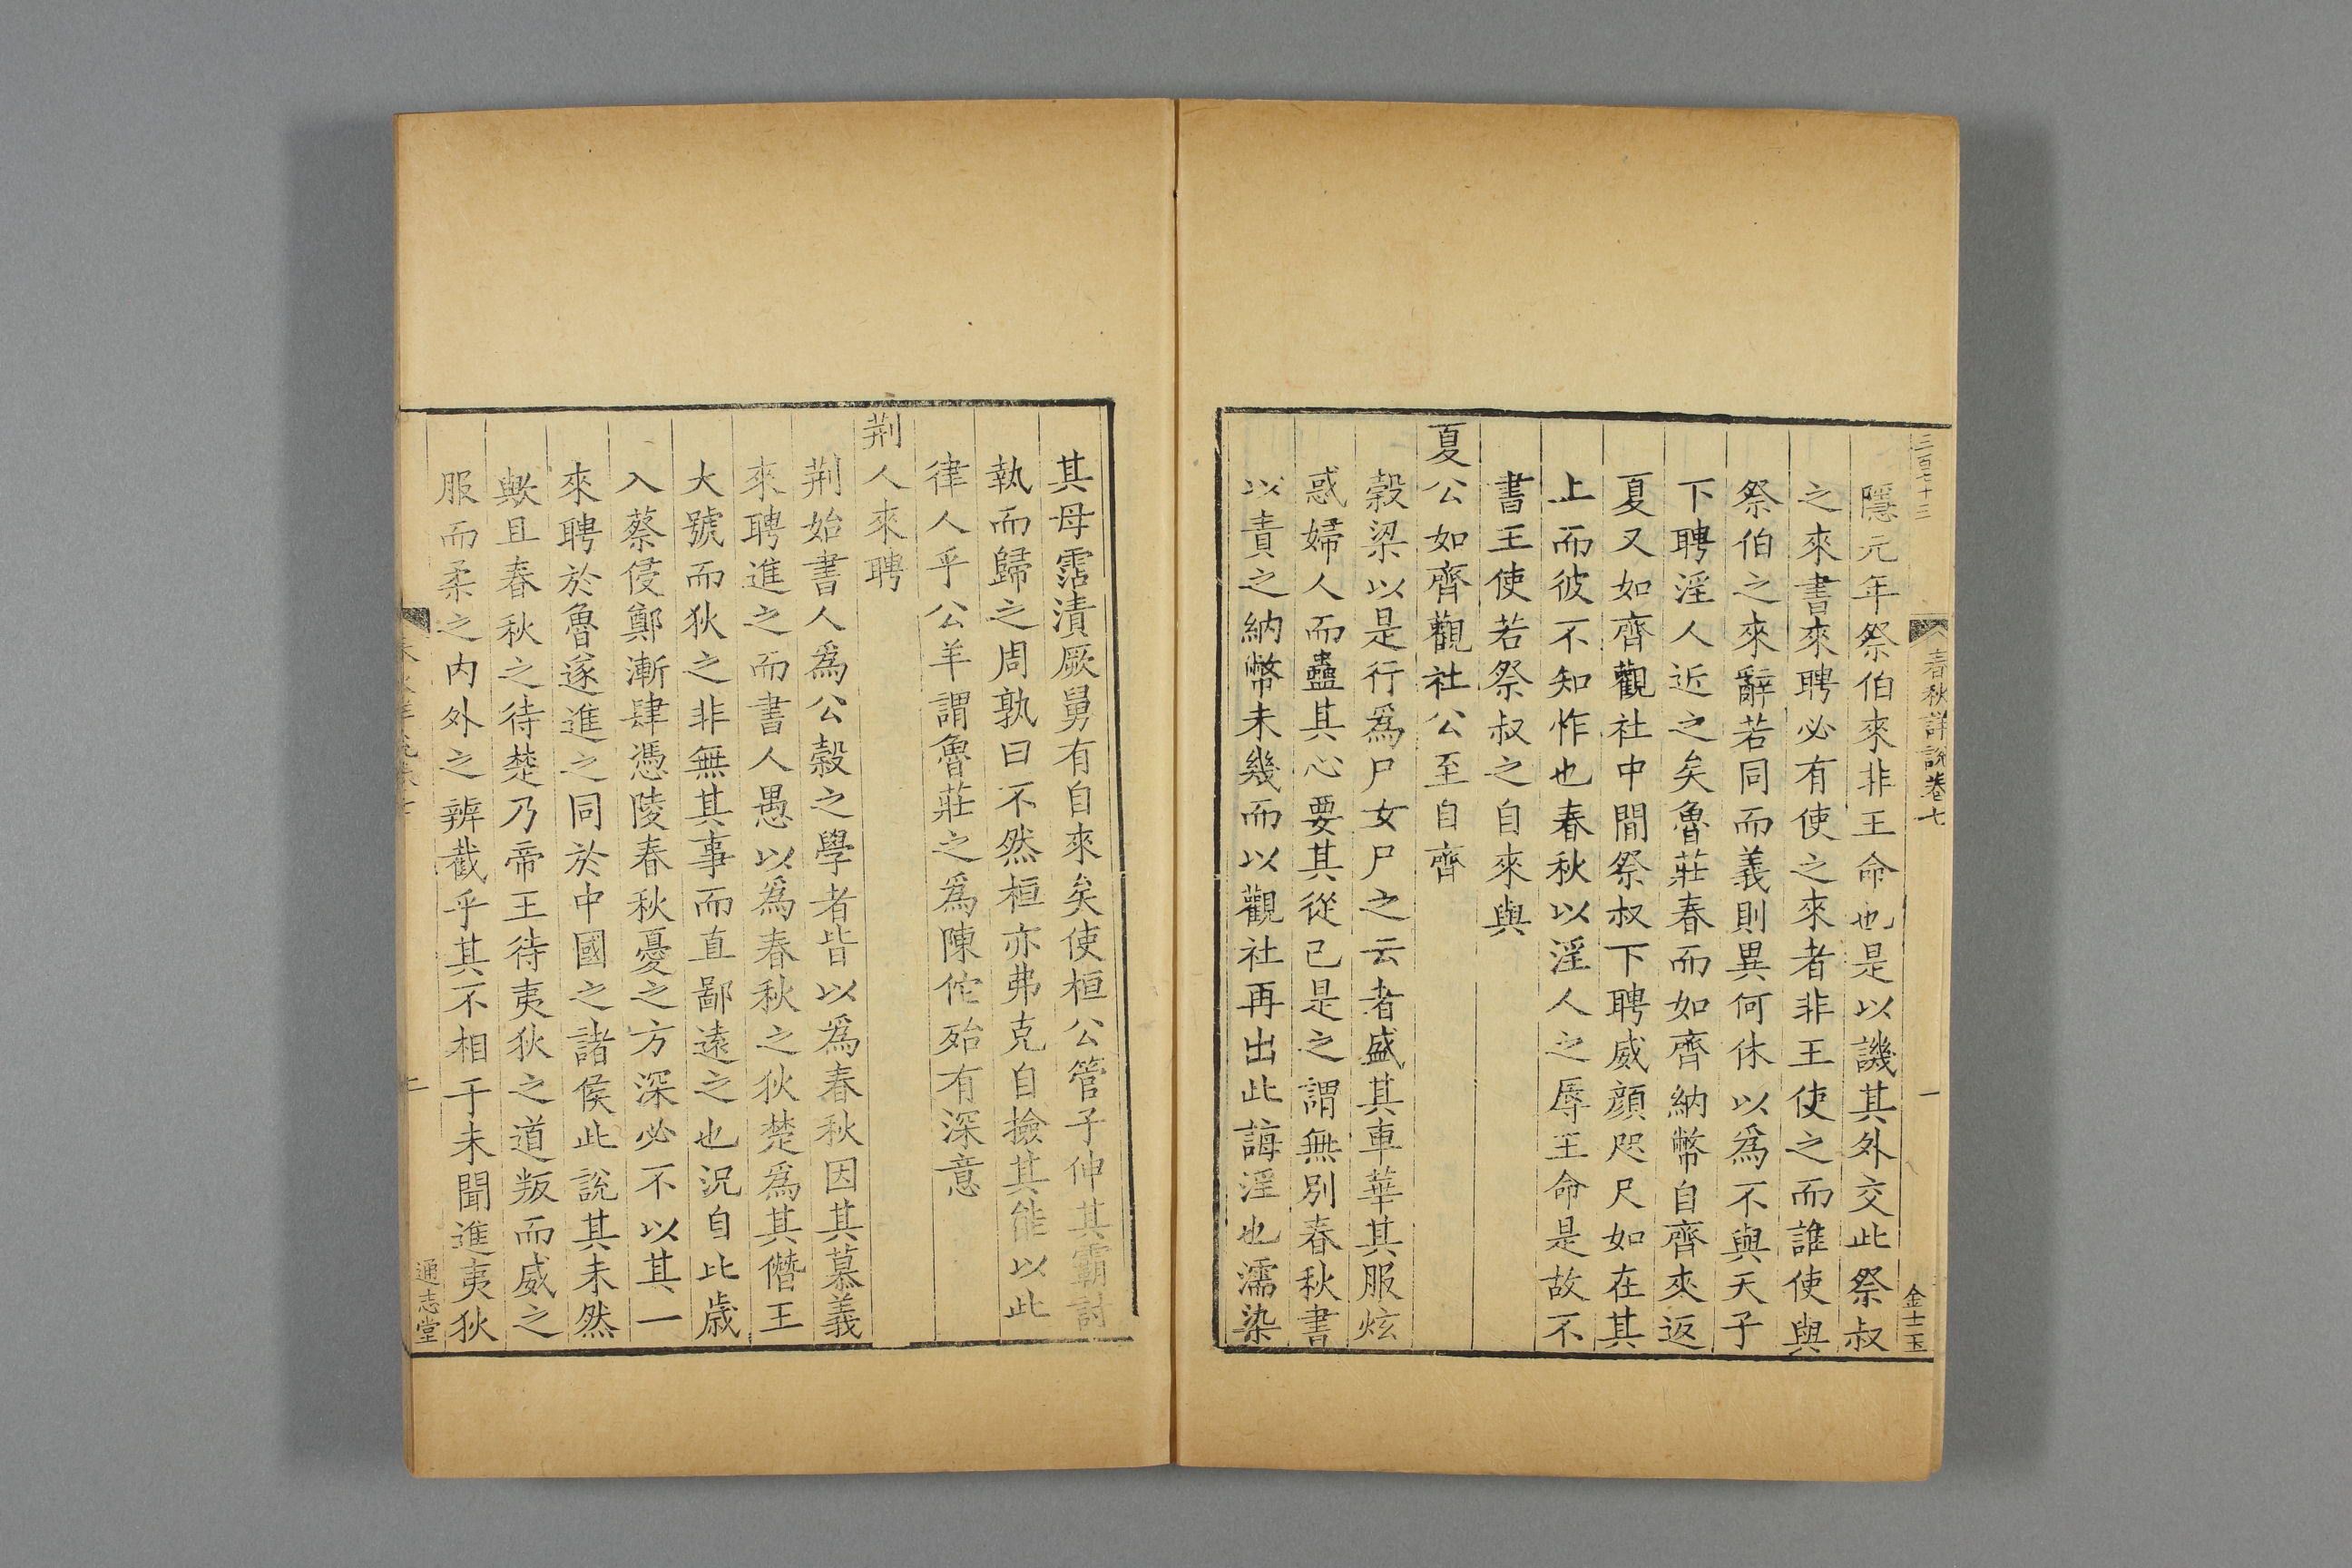 三百七十三
春秋詳說卷七
一
金士玉
隱元年祭伯來非王命也是以譏其外交此祭叔
之來書來聘必有使之來者非王使之而誰使與
祭伯之來辭若同而義則異何休以爲不與天子
下聘淫人近之矣魯莊春而如齊納幣自齊來返
夏又如齊觀社中間祭叔下聘威顔咫尺如在其
上而彼不知怍也春秋以淫人之辱王命是故不
書王使若祭叔之自來與
夏公如齊觀社公至自齊
穀梁以是行爲尸女尸之云者盛其車華其服炫
惑婦人而蠱其心要其從已是之謂無別春秋書
以責之納幣未幾而以觀社再出此誨淫也濡染
其母霑漬厥舅有自來矣使桓公管子伸其霸討
執而歸之周孰曰不然桓亦弗克自撿其能以此
律人乎公羊謂魯莊之爲陳佗殆有深意
荆人來聘
荆始書人爲公穀之學者皆以爲春秋因其慕義
來聘進之而書人愚以爲春秋之狄楚爲其僭王
大號而狄之非無其事而直鄙遠之也況自此歲
入蔡侵鄭漸肆憑陵春秋憂之方深必不以其一
來聘於魯遂進之同於中國之諸侯此說其未然
歟且春秋之待楚乃帝王待夷狄之道叛而威之
服而柔之内外之辨截乎其不相干未聞進夷狄
通志堂